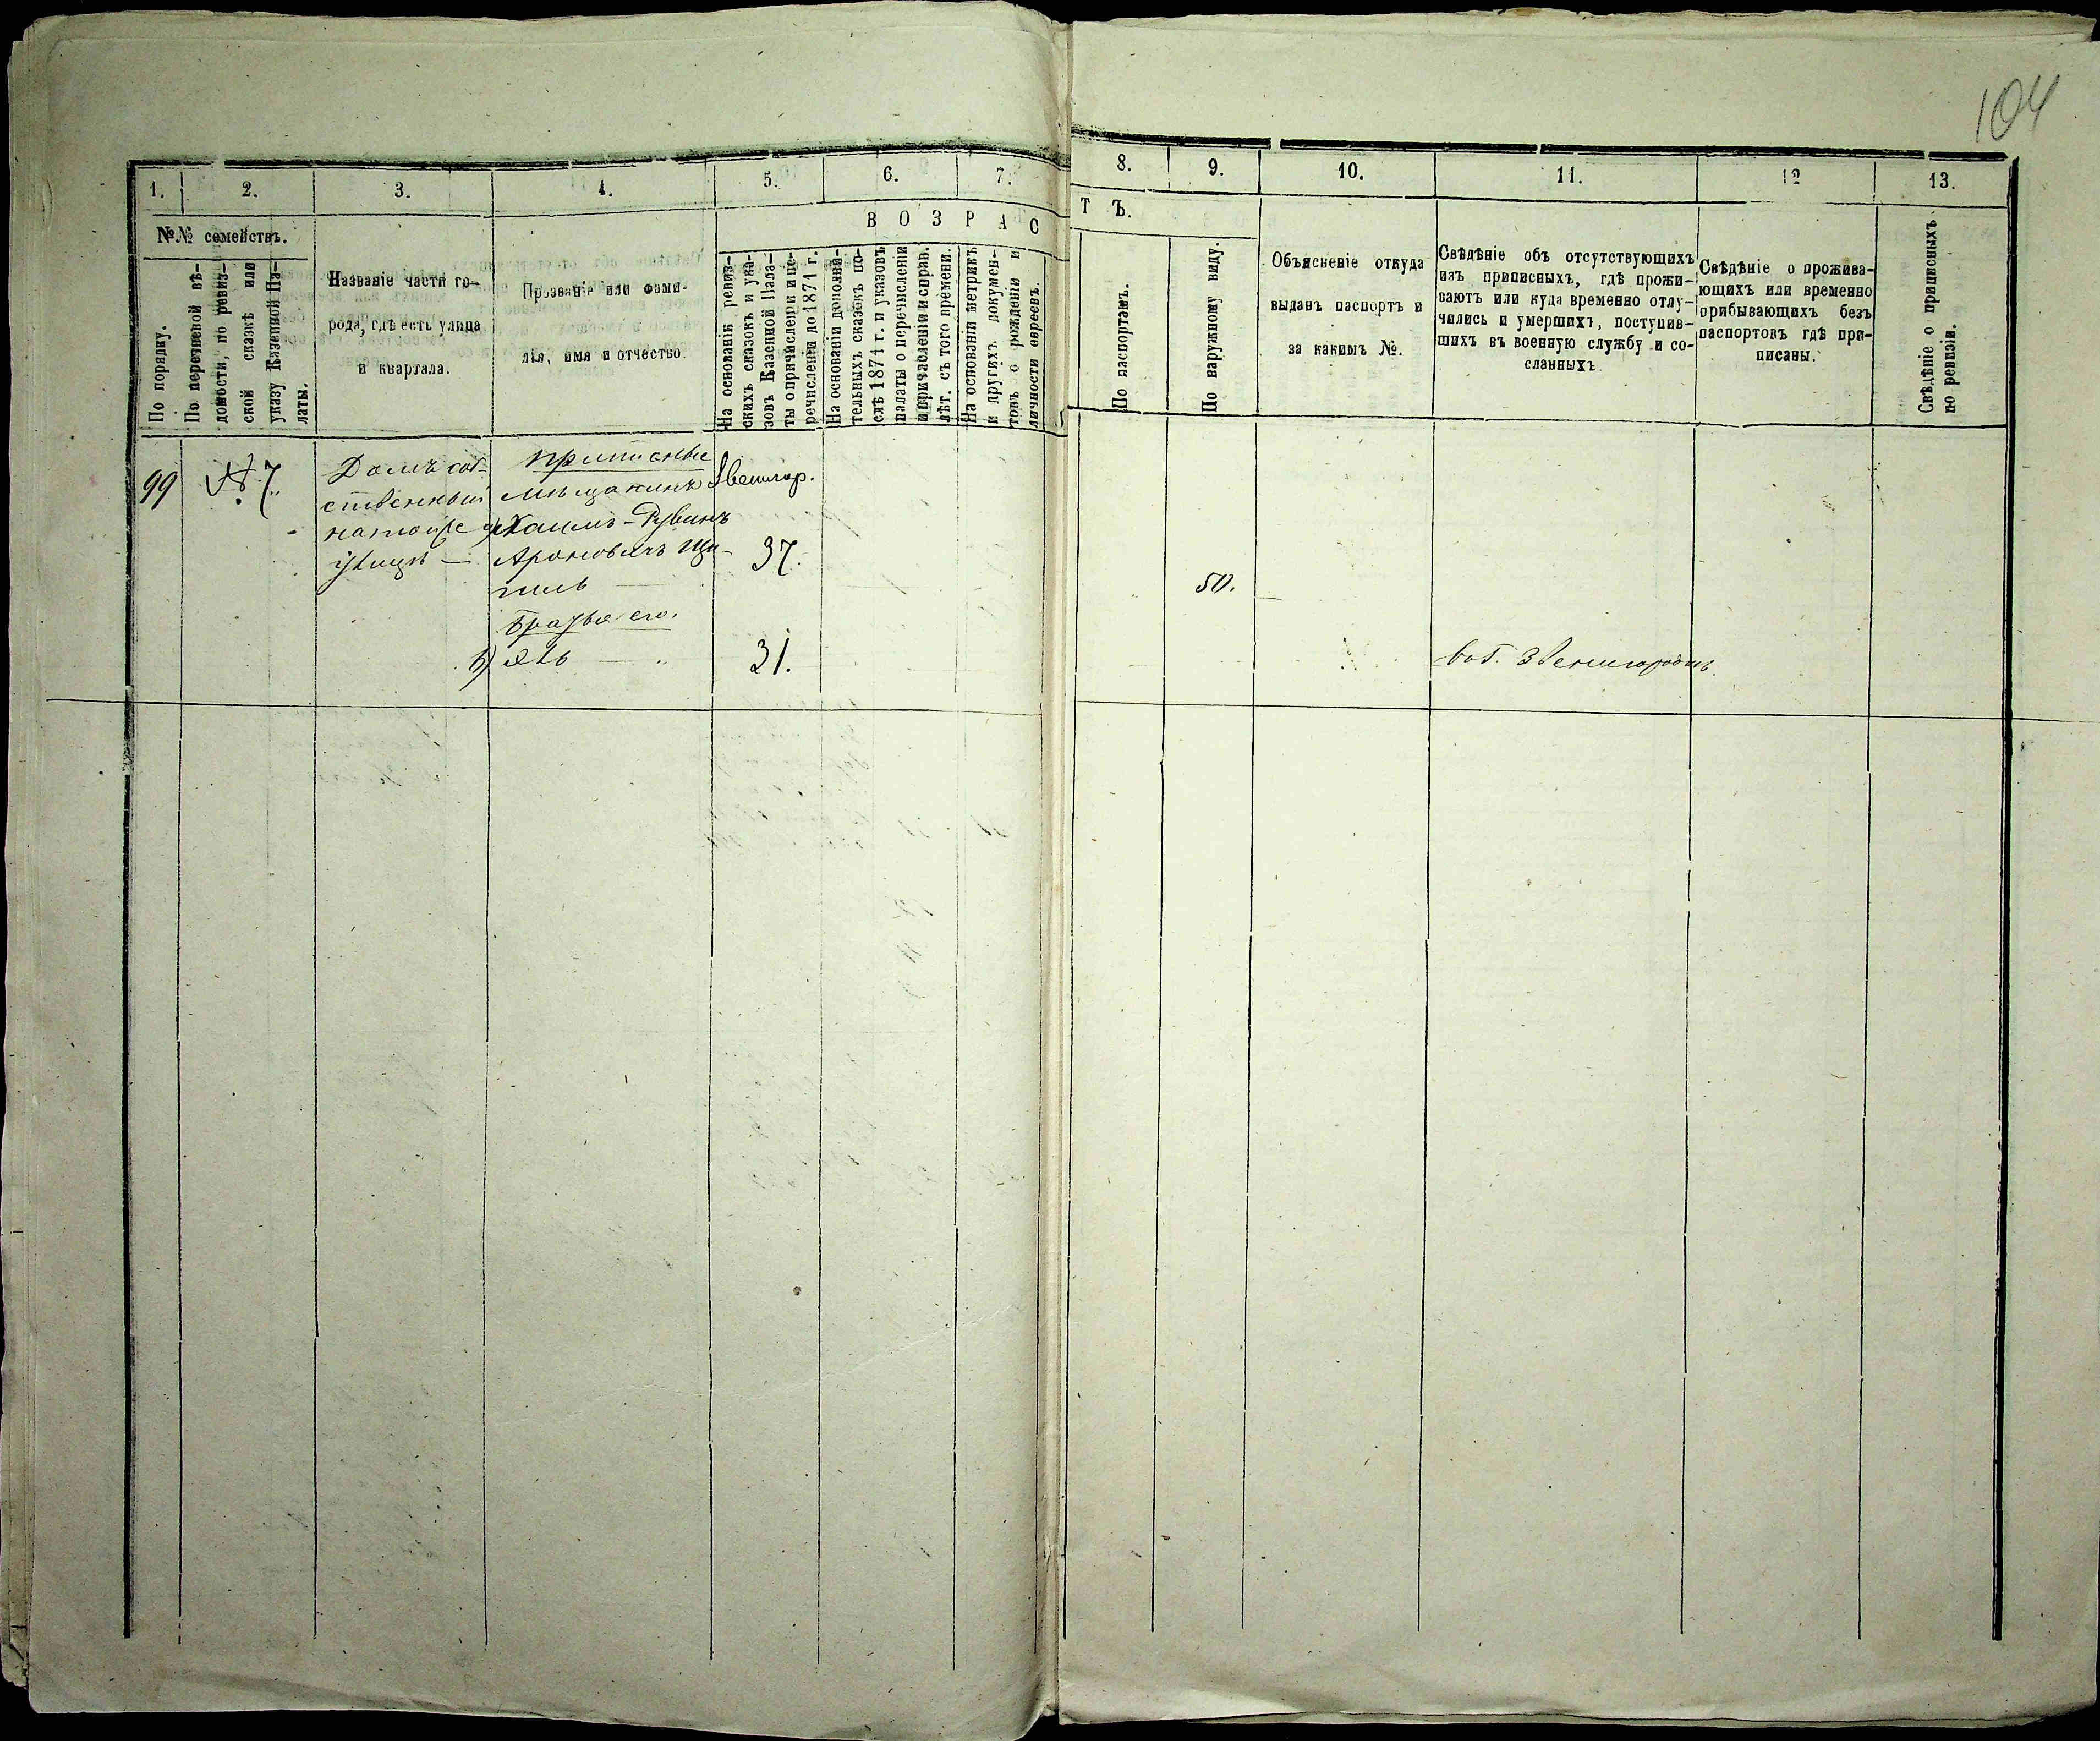 104
1. 2. 3. 4. 5. 6. 7. 8. 9. 10. 11. 12 13.
№№ семействъ.
По порядку.
По перечневой вѣ-
домости, по ревиз-
ской сказкѣ или
указу Казенной Па-
латы.
Названіе части го-
рода, гдѣ есть улица
и квартала.
Прозваніе или фами-
лія, имя и отчество.
ВОЗРАС
ТЪ.
На основаніи ревиз-
скихъ сказокъ и ука-
зовъ Казенной Пала-
ты о причисленіи и пе-
речисленіи до 1871 г.
На основаніи дополни-
тельныхъ сказокъ по-
слѣ 1871 г. и указовъ
палаты о перечисленіи
и причисленіи и справ.
лѣт. съ того времени.
На основаніи метрикъ
и другихъ докумен-
товъ о рожденіи и
личности евреевъ.
По паспортамъ.
По наружному виду.
Объясненіе откуда
выданъ паспортъ и
за какимъ №.
Свѣдѣніе объ отсутствующихъ
изъ приписныхъ, гдѣ прожи-
ваютъ или куда временно отлу-
чились и умершихъ, поступив-
шихъ въ военную службу и со-
сланныхъ
Свѣдѣніе о прожива-
ющихъ или временно
прибывающихъ безъ
паспортовъ гдѣ при-
писаны.
Свѣдѣніе о приписныхъ
по ревизіи.
99
№ 7.
Домъ соб-
ственный
на той же
улицѣ —
приписные
мѣщанинъ
Хаимъ-Рувинъ
Ароновичъ
37.
50.
Братья его.
31.